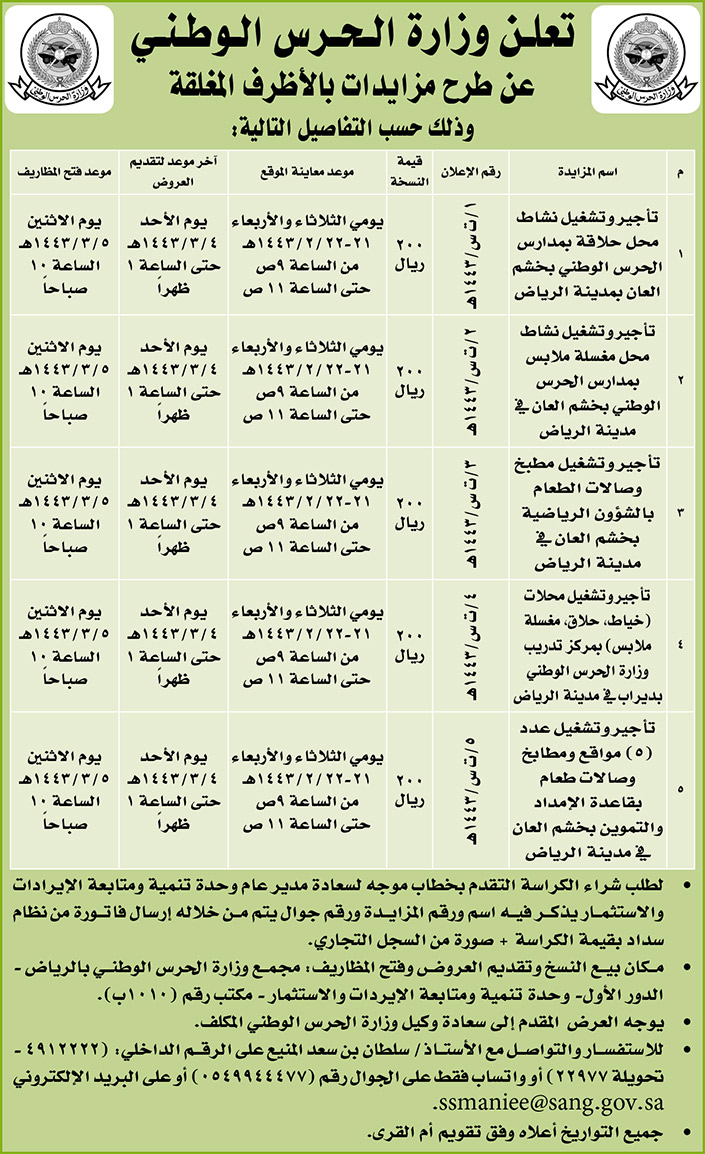 تعلن وزارة الحرس الوطني
عن طرح مزايدات بالأظرف المغلقة
وذلك حسب التفاصيل التالية:
وزارة الحرس الوطني
وزارة الحرس الوطني
م
اسم المزايدة
رقم الإعلان
قيمة
النسخة
موعد معاينة الموقع
آخر موعد لتقديم
العروض
موعد فتح المظاريف
١
تأجير وتشغيل نشاط
محل حلاقة بمدارس
الحرس الوطني بخشم
العان بمدينة الرياض
١/ت س/١٤٤٣هـ
٢٠٠
ريال
يومي الثلاثاء والأربعاء
٢١-١٤٤٣/٢/٢٢هـ
من الساعة ٩ص
حتى الساعة ١١ ص
يوم الأحد
١٤٤٣/٣/٤هـ
حتى الساعة ١
ظهراً
يوم الاثنين
١٤٤٣/٣/٥هـ
الساعة ١٠
صباحاً
٢
تأجير وتشغيل نشاط
محل مغسلة ملابس
بمدارس الحرس
الوطني بخشم العان في
مدينة الرياض
٢/ت س/١٤٤٣هـ
٢٠٠
ريال
يومي الثلاثاء والأربعاء
٢١-١٤٤٣/٢/٢٢هـ
من الساعة ٩ص
حتى الساعة ١١ ص
يوم الأحد
١٤٤٣/٣/٤هـ
حتى الساعة ١
ظهراً
يوم الاثنين
١٤٤٣/٣/٥هـ
الساعة ١٠
صباحاً
٣
تأجير وتشغيل مطبخ
وصالات الطعام
بالشؤون الرياضية
بخشم العان في
مدينة الرياض
٣/ت س/١٤٤٣هـ
٢٠٠
ريال
يومي الثلاثاء والأربعاء
٢١-١٤٤٣/٢/٢٢هـ
من الساعة ٩ص
حتى الساعة ١١ ص
يوم الأحد
١٤٤٣/٣/٤هـ
حتى الساعة ١
ظهراً
يوم الاثنين
١٤٤٣/٣/٥هـ
الساعة ١٠
صباحاً
٤
تأجير وتشغيل محلات
(خياط، حلاق، مغسلة
ملابس) بمركز تدريب
وزارة الحرس الوطني
بديراب في مدينة الرياض
٤/ت س/١٤٤٣هـ
٢٠٠
ريال
يومي الثلاثاء والأربعاء
٢١-١٤٤٣/٢/٢٢هـ
من الساعة ٩ص
حتى الساعة ١١ ص
يوم الأحد
١٤٤٣/٣/٤هـ
حتى الساعة ١
ظهراً
يوم الاثنين
١٤٤٣/٣/٥هـ
الساعة ١٠
صباحاً
٥
تأجير وتشغيل عدد
(٥) مواقع ومطابخ
وصالات طعام
بقاعدة الإمداد
والتموين بخشم العان
في مدينة الرياض
٥/ت س/١٤٤٣هـ
٢٠٠
ريال
يومي الثلاثاء والأربعاء
٢١-١٤٤٣/٢/٢٢هـ
من الساعة ٩ص
حتى الساعة ١١ ص
يوم الأحد
١٤٤٣/٣/٤هـ
حتى الساعة ١
ظهراً
يوم الاثنين
١٤٤٣/٣/٥هـ
الساعة ١٠
صباحاً
• لطلب شراء الكراسة التقدم بخطاب موجه لسعادة مدير عام وحدة تنمية ومتابعة الإيرادات
والاستثمار يذكر فيه اسم ورقم المزايدة ورقم جوال يتم من خلاله إرسال فاتورة من نظام
سداد بقيمة الكراسة + صورة من السجل التجاري.
• مكان بيع النسخ وتقديم العروض وفتح المظاريف: مجمع وزارة الحرس الوطني بالرياض -
الدور الأول- وحدة تنمية ومتابعة الإيردات والاستثمار - مكتب رقم (١٠١٠ب).
• يوجه العرض المقدم إلى سعادة وكيل وزارة الحرس الوطني المكلف.
• للاستفسار والتواصل مع الأستاذ/ سلطان بن سعد المنيع على الرقم الداخلي: (٤٩١٢٢٢٢ -
تحويلة ٢٢٩٧٧) أو واتساب فقط على الجوال رقم (٠٥٤٩٩٤٤٤٧٧) أو على البريد الإلكتروني
ssmaniee@sang.gov.sa.
• جميع التواريخ أعلاه وفق تقويم أم القرى.